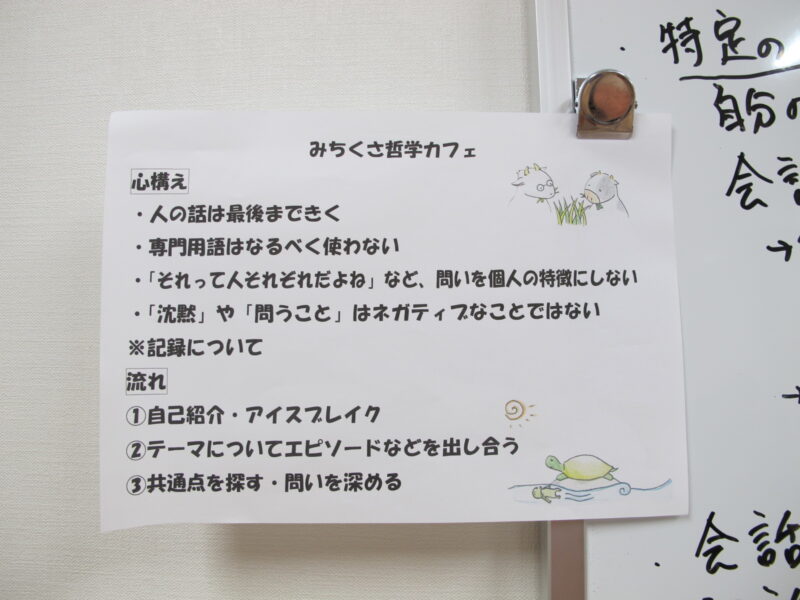 みちくさ哲学カフェ
心構え
・人の話は最後まできく
・専門用語はなるべく使わない
・「それって人それぞれだよね」など、問いを個人の特徴にしない
・「沈黙」や「問うこと」はネガティブなことではない
※記録について
流れ
①自己紹介・アイスブレイク
②テーマについてエピソードなどを出し合う
③共通点を探す・問いを深める
・特定の
自分の
会話
→
→
・会話